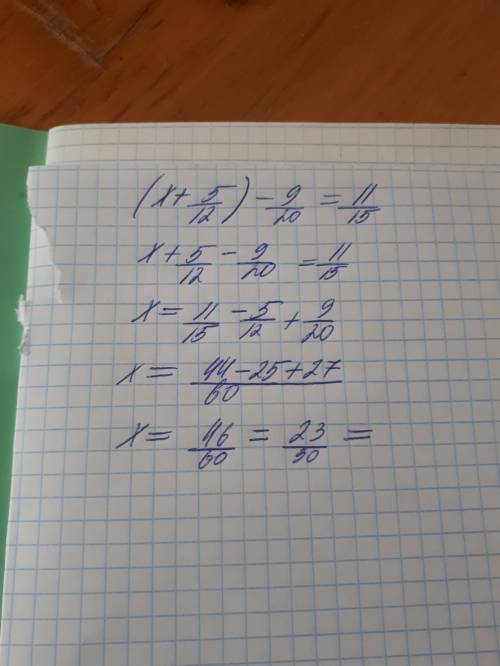 (x + 5/12) - 9/20 = 11/15
x + 5/12 - 9/20 = 11/15
x = 11/15 - 5/12 + 9/20
x = 44 - 25 + 27/60
x = 46/60 = 23/30 =